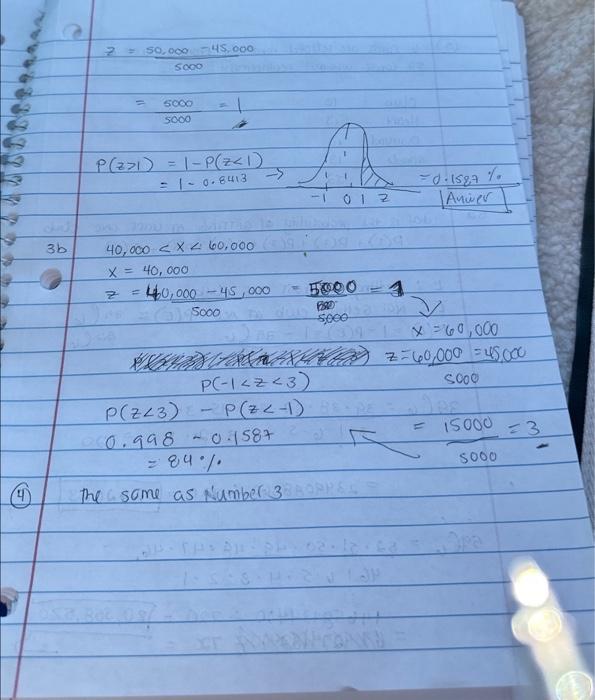 z = 50,000 - 45,000
5000
= 5000 = 1
5000
P(z>1) = 1 - P(z<1)
= 1 - 0.8413 →
-1 0 1 2
= 0.1587 %
Answer
3b 40,000 < x < 60,000
x = 40,000
z = 40,000 - 45,000 = 5000 = 1
5000 5,000
x = 60,000
z = 60,000 = 45,000
5000
P(-1 < z < 3)
P(z<3) - P(z<-1)
= 15000 = 3
5000
0.998 - 0.1587
= 84%
4 The same as Number 3